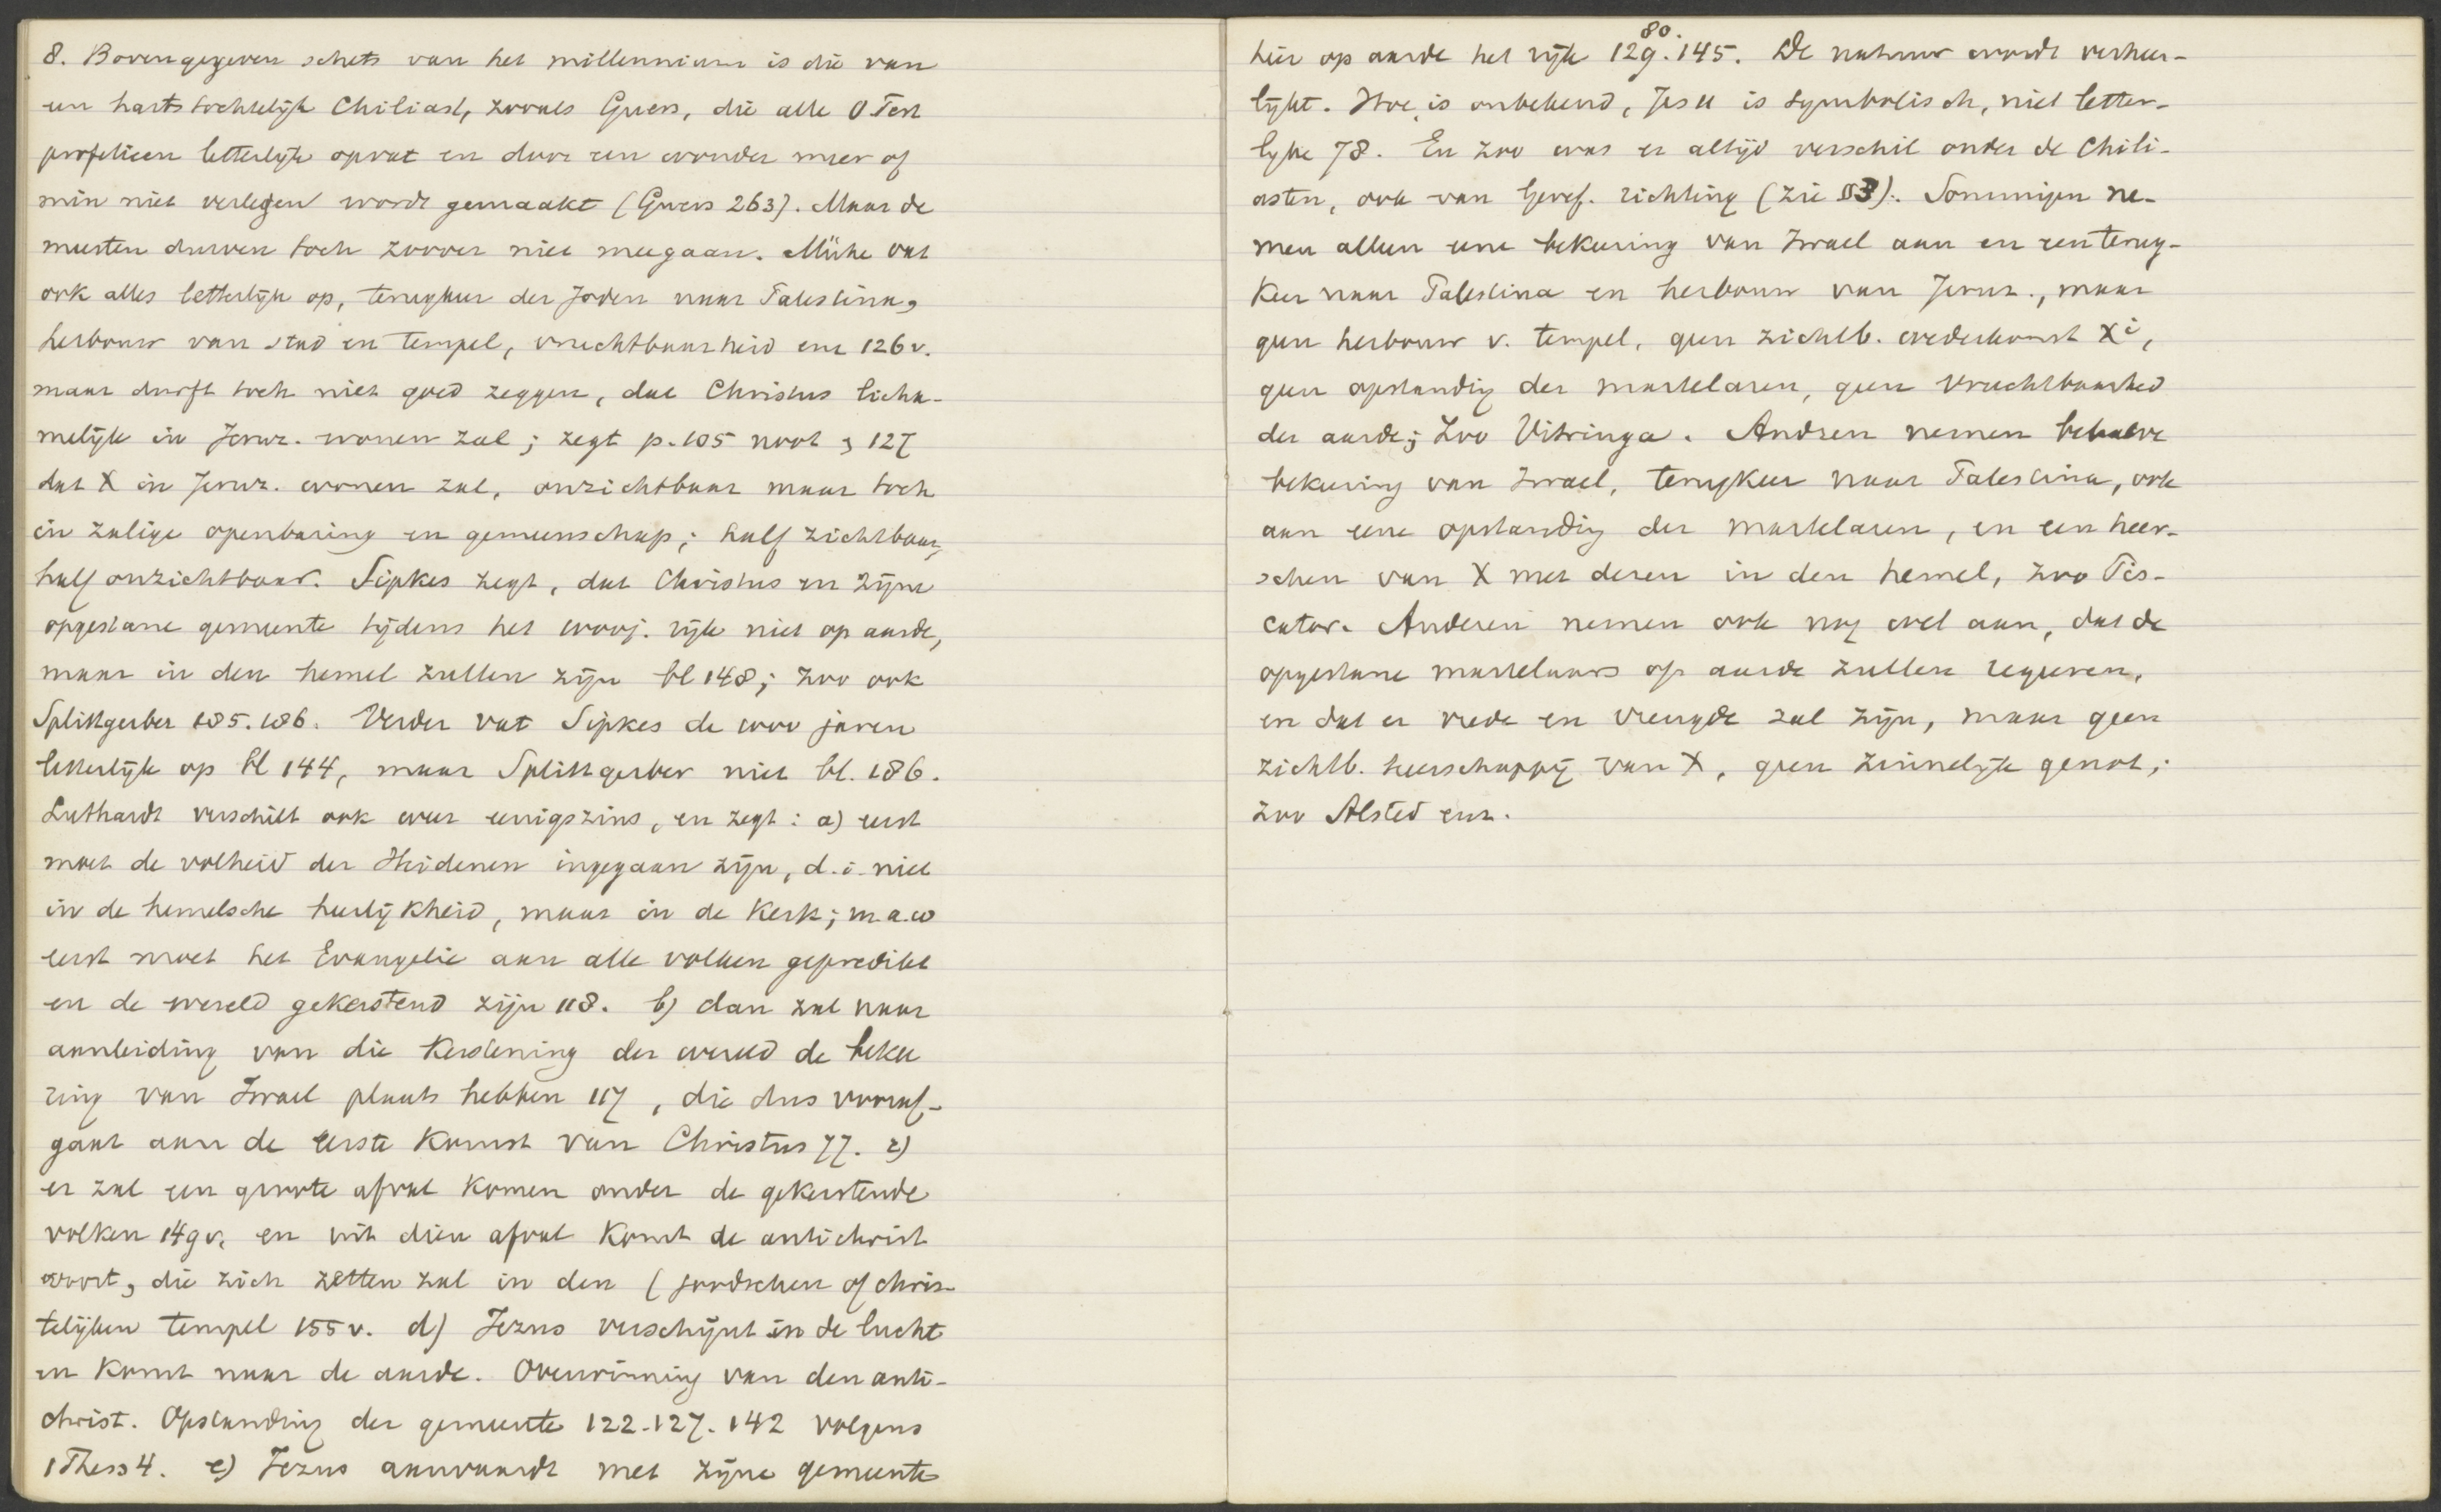 8. Bovengegeven schets van het millennium is die van
een hartstochtelijk Chiliast, zooals Guers, die alle O Test
profetieen letterlijk opvat en door een wonder meer of
min niet verlegen wordt gemaakt (Guers 263). Maar de
meesten durven toch zoover niet meegaan. Mühe vat
ook alles letterlijk op, terugkeer der Joden naar Palestina,
herbouw van stad en tempel, vruchtbaarheid enz 126v.
maar durft toch niet goed zeggen, dat Christus licha-
melijk in Jeruz. wonen zal; zegt p. 105 noot, 127
dat X in Jeruz. wonen zal, onzichtbaar maar toch
in zalige openbaring en gemeenschap; half zichtbaar,
half onzichtbaar. Sipkes zegt, dat Christus en zijne
opgestane gemeente tijdens het 1000j. rijk niet op aarde,
maar in den hemel zullen zijn bl 148; zoo ook
Splittgerber 185.186. Verder vat Sipkes de 1000 jaren
letterlijk op bl 144, maar Splittgerber niet bl. 186.
Luthardt verschilt ook weer eenigszins, en zegt: a) eerst
moet de volheid der Heidenen ingegaan zijn, d.i. niet
in de hemelsche heerlijkheid, maar in de Kerk; m.a.w
eerst moet het Evangelie aan alle volken gepredikt
en de wereld gekerstend zijn 118. b) dan zal naar
aanleiding van die Kerstening der wereld de beke
ring van Israel plaats hebben 117, die dus vooraf-
gaat aan de eerste Komst van Christus 77. c)
er zal een groote afval komen onder de gekerstende
volken 149v. en uit dien afval Komt de antichrist
voort, die zich zetten zal in den (joodschen of chris-
telijken tempel 155v. d) Jezus verschijnt in de lucht
en Komt naar de aarde. Overwinning van den anti-
christ. Opstanding der gemeente 122.127.142 volgens
1 Thess 4. e) Jezus aanvaardt met zijne gemeente
80.
hier op aarde het rijk 129.145. De natuur wordt verheer-
lijkt. Hoe, is onbekend, Jes 11 is symbolisch, niet letter-
lijke 78. En zoo was er altijd verschil onder de Chili-
asten, ook van Geref. richting (zie §3). Sommigen ne-
men alleen eene bekeering van Israel aan en een terug-
Keer naar Palestina en herbouw van Jeruz., maar
geen herbouw v. tempel, geen zichtb. wederkomst Xi,
geen opstanding der martelaren, geen vruchtbaarheid
der aarde; zoo Vitringa. Andren nemen behalve
bekeering van Israel, terugKeer naar Palestina, ook
aan eene opstanding der martelaren, en een heer-
schen van X met dezen in den hemel, zoo Pis-
cator. Anderen nemen ook nog wel aan, dat de
opgestane martelaars op aarde zullen regeeren,
en dat er vrede en vreugde zal zijn, maar geen
zichtb. heerschappij van X, geen zinnelijk genot;
zoo Alsted enz.